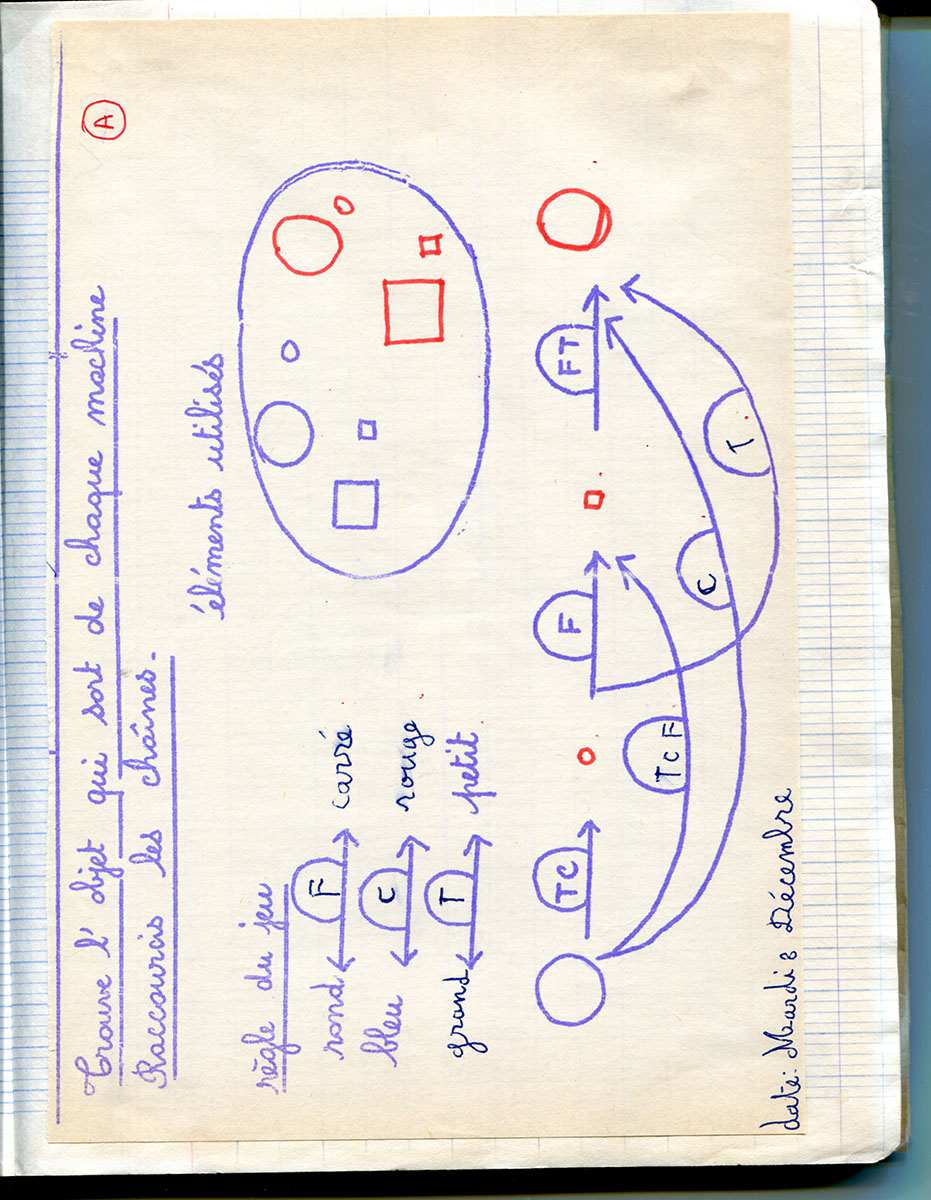 Trouve l'objet qui sort de chaque machine
Ⓐ
Raccourcis les chaînes.
éléments utilisés
règle du jeu
rond F carré
bleu C rouge
grand T petit
TC F FT
TCF C T
date: Mardi 8 Décembre